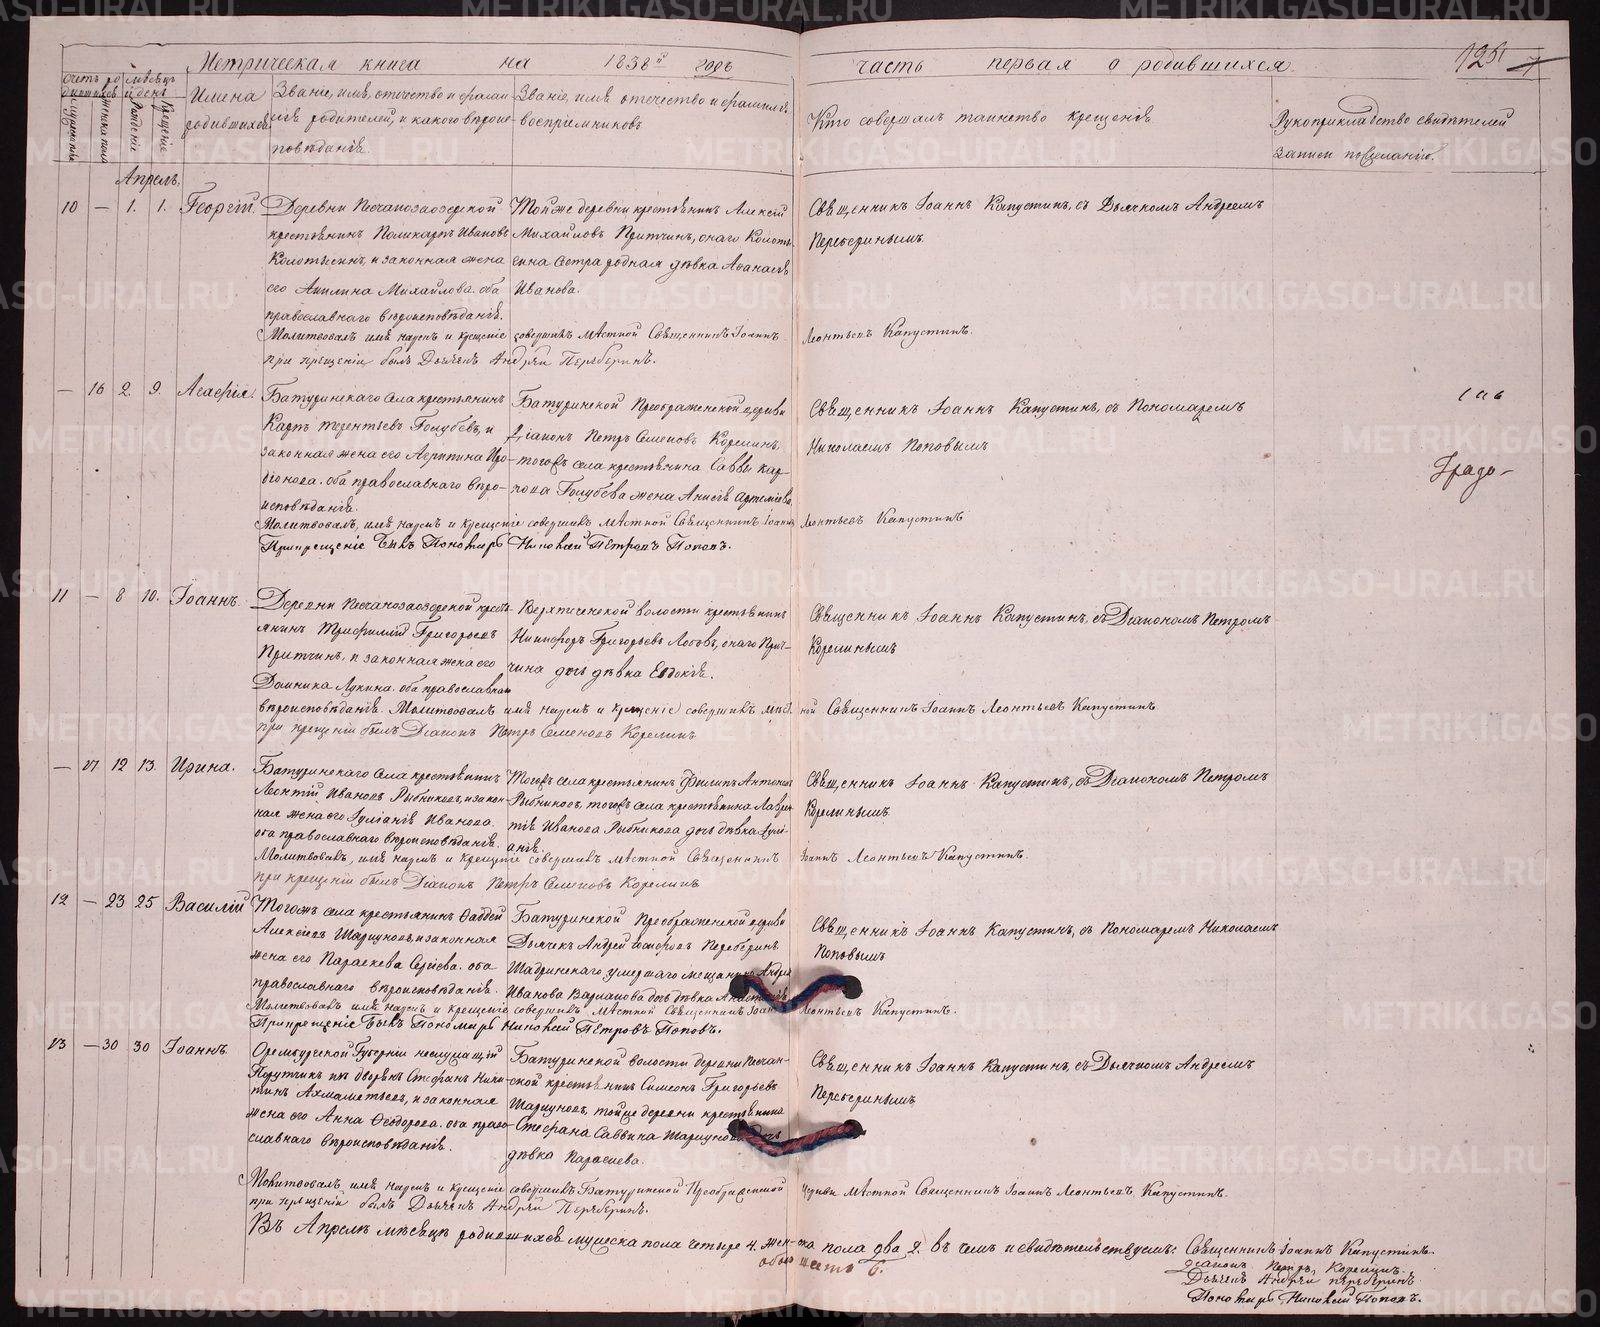 Метрическая книга на 1838й годъ часть первая о родившихся. 1251
Счетъ родившихся
Мѣсяцъ и день
Мужеска пола
Женска пола
Рожденіе
Крещеніе
Имена родившихся
Званіе, имя, отечество и фамилія родителей, и какого вѣроисповѣданія.
Званіе, имя отечество и фамилія воспріемниковъ
Кто совершалъ таинство крещенія
Рукоприкладство свидѣтелей записи по желанію.
Апрель.
10 — 1. 1. Георгій.
Деревни Песчанозаозерской
крестьянинъ Поликарпъ Ивановъ
Колотыгинъ, и законная жена
его Акилина Михайлова. оба
православнаго вѣроисповѣданія.
Той же деревни крестьянинъ Алексій
Михайловъ Притчинъ, онаго Колоты-
гина сестра родная дѣвка Аѳанасія
Иванова.
Священникъ Іоаннъ Капустинъ, съ Дьячкомъ Андреемъ
Переберинымъ.
Молитвовалъ имя нарекъ и крещеніе совершилъ мѣстной Священникъ Іоаннъ Леонтьевъ Капустинъ.
при крещеніи былъ Дьячекъ Андрей Переберинъ.
— 16 2. 9. Агафія.
Батуринскаго села крестьянинъ
Карпъ Терентьевъ Голубевъ, и
законная жена его Агрипина Иро-
діонова. оба православнаго вѣро-
исповѣданія.
Батуринской Преображенской церкви
Діаконъ Петръ Семеновъ Корелинъ,
тогожъ села крестьянина Саввы Кар-
пова Голубева жена Анисія Артеміева.
Священникъ Іоаннъ Капустинъ, съ Пономаремъ
Николаемъ Поповымъ
Градо-
Молитвовалъ, имя нарекъ и крещеніе совершилъ мѣстной Священникъ Іоаннъ Леонтьевъ Капустинъ
При крещеніе былъ Пономарь Николай Петровъ Поповъ.
11 — 8 10. Іоаннъ.
Деревни Песчанозаозерской кресть-
янинъ Трифиллій Григорьевъ
Притчинъ, и законная жена его
Домника Лукина. оба православнаго
вѣроисповѣданія.
Верхтеченской волости крестьянинъ
Никифоръ Григорьевъ Лобовъ, онаго Прит-
чина дочь дѣвка Евдокія.
Священникъ Іоаннъ Капустинъ, съ Діакономъ Петромъ
Корелинымъ
Молитвовалъ имя нарекъ и крещеніе совершилъ мѣстной Священникъ Іоаннъ Леонтьевъ Капустинъ
при крещеніи былъ Діаконъ Петръ Семеновъ Корелинъ
— 17 12 13. Ирина.
Батуринскаго села крестьянинъ
Леонтій Ивановъ Рыбниковъ, и закон-
ная жена его Іуліанія Иванова.
оба православнаго вѣроисповѣданія.
Тогожъ села крестьянинъ Филипъ Антоновъ
Рыбниковъ, тогожъ села крестьянина Лаврен-
тія Иванова Рыбникова дочь дѣвка Іулі-
анія.
Священникъ Іоаннъ Капустинъ, съ Діакономъ Петромъ
Корелинымъ.
Молитвовалъ, имя нарекъ и крещеніе совершилъ мѣстной Священникъ Іоаннъ Леонтьевъ Капустинъ.
при крещеніи былъ Діаконъ Петръ Семеновъ Корелинъ
12 — 23 25 Василій
Тогожъ села крестьянинъ Ѳаддей
Алексіевъ Шаршуновъ, и законная
жена его Параскева Сергіева. оба
православнаго вѣроисповѣданія.
Батуринской Преображенской церкви
Дьячекъ Андрей Переберинъ
Шадринскаго умершаго мещанина Андрея
Иванова Варлакова дочь дѣвка Анастасія
Священникъ Іоаннъ Капустинъ, съ Пономаремъ Николаемъ
Поповымъ
Молитвовалъ имя нарекъ и крещеніе совершилъ мѣстной Священникъ Іоаннъ Леонтьевъ Капустинъ.
При крещеніе былъ Пономарь Николай Петровъ Поповъ.
13 — 30 30 Іоаннъ.
Оренбургской Губерніи неслужащій
Порутчикъ изъ дворянъ Стефанъ Ники-
тинъ Ахмаметьевъ, и законная
жена его Анна Ѳеодорова. оба право-
славнаго вѣроисповѣданія.
Батуринской волости деревни Песчан-
ской крестьянинъ Симеонъ Григорьевъ
Шаршуновъ, тойже деревни крестьянина
Стефана Саввина Шаршунова дочь
дѣвка Параскева.
Священникъ Іоаннъ Капустинъ, съ Дьячкомъ Андреемъ
Переберинымъ
Молитвовалъ имя нарекъ и крещеніе совершилъ Батуринской Преображенской церкви мѣстной Священникъ Іоаннъ Леонтьевъ Капустинъ.
при крещеніи былъ Дьячекъ Андрей Переберинъ.
Въ Апрелѣ мѣсяцѣ родившихся мужеска пола четыре 4. женска пола два 2. Въ чемъ и свидѣтельствуемъ: Священникъ Іоаннъ Капустинъ.
обоего шесть 6.
Діаконъ Петръ Корелинъ.
Дьячекъ Андрей Переберинъ
Пономарь Николай Поповъ.
METRIKI.GASO-URAL.RU